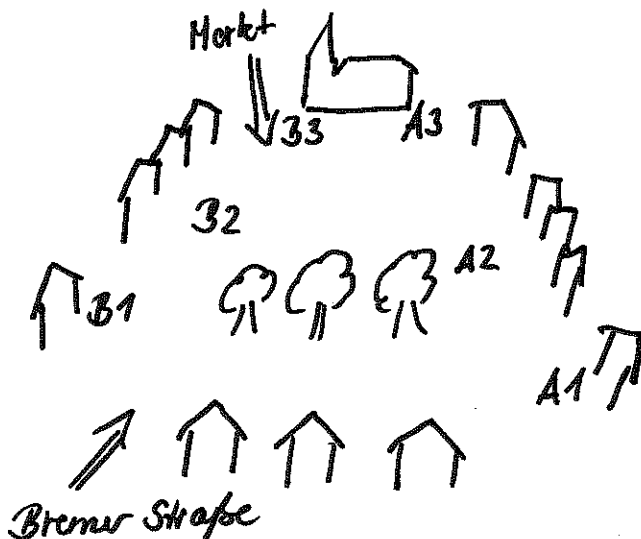 Markt
B3
A3
B2
A2
B1
A1
Bremer Straße